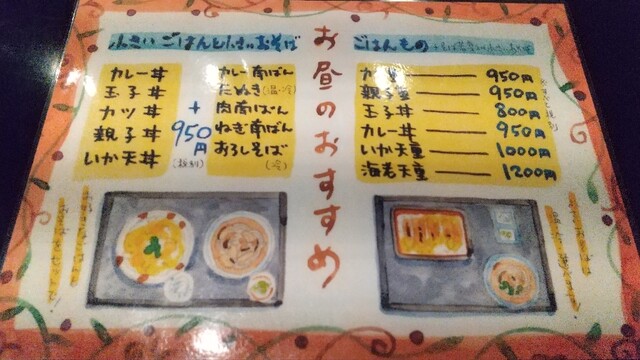 お昼のおすすめ
小さいごはんと小さいおそば
カレー丼
玉子丼
カツ丼
親子丼
いか天丼
+
950円
(税別)
カレー南ばん
たぬき(温・冷)
肉南ばん
ねぎ南ばん
おろしそば
(冷)
ごはんもの
950円
親子重 950円
玉子丼 800円
カレー丼 950円
いか天重 1000円
海老天重 1200円